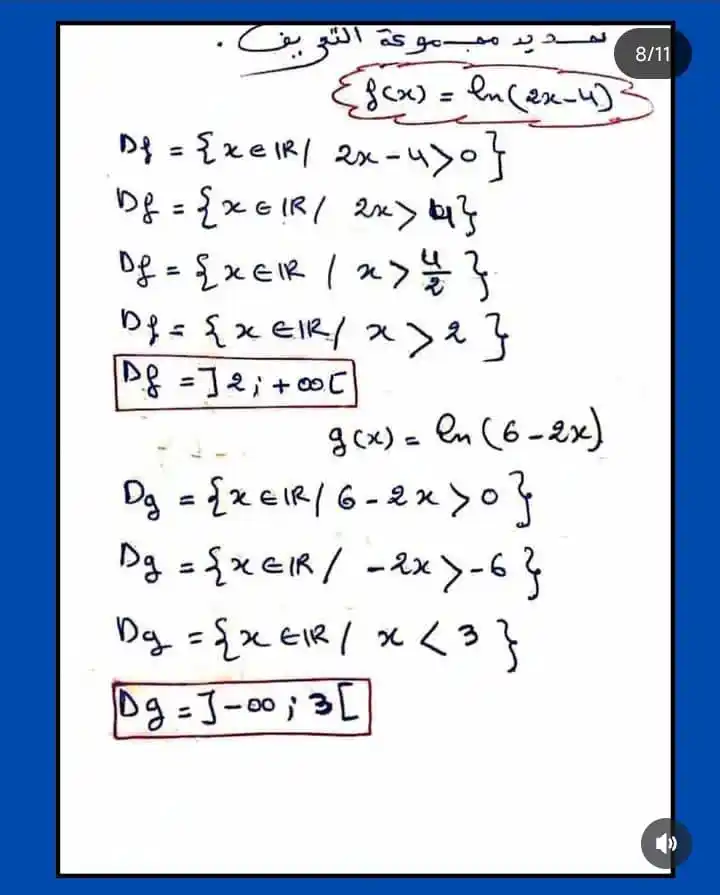 تحديد مجموعة التعريف.
8/11
f(x) = ln(2x-4)
Df = {x ∈ IR / 2x - 4 > 0}
Df = {x ∈ IR / 2x > 4}
Df = {x ∈ IR / x > 4/2}
Df = {x ∈ IR / x > 2}
Df = ]2; +∞[
g(x) = ln(6-2x)
Dg = {x ∈ IR / 6 - 2x > 0}
Dg = {x ∈ IR / -2x > -6}
Dg = {x ∈ IR / x < 3}
Dg = ]-∞; 3[